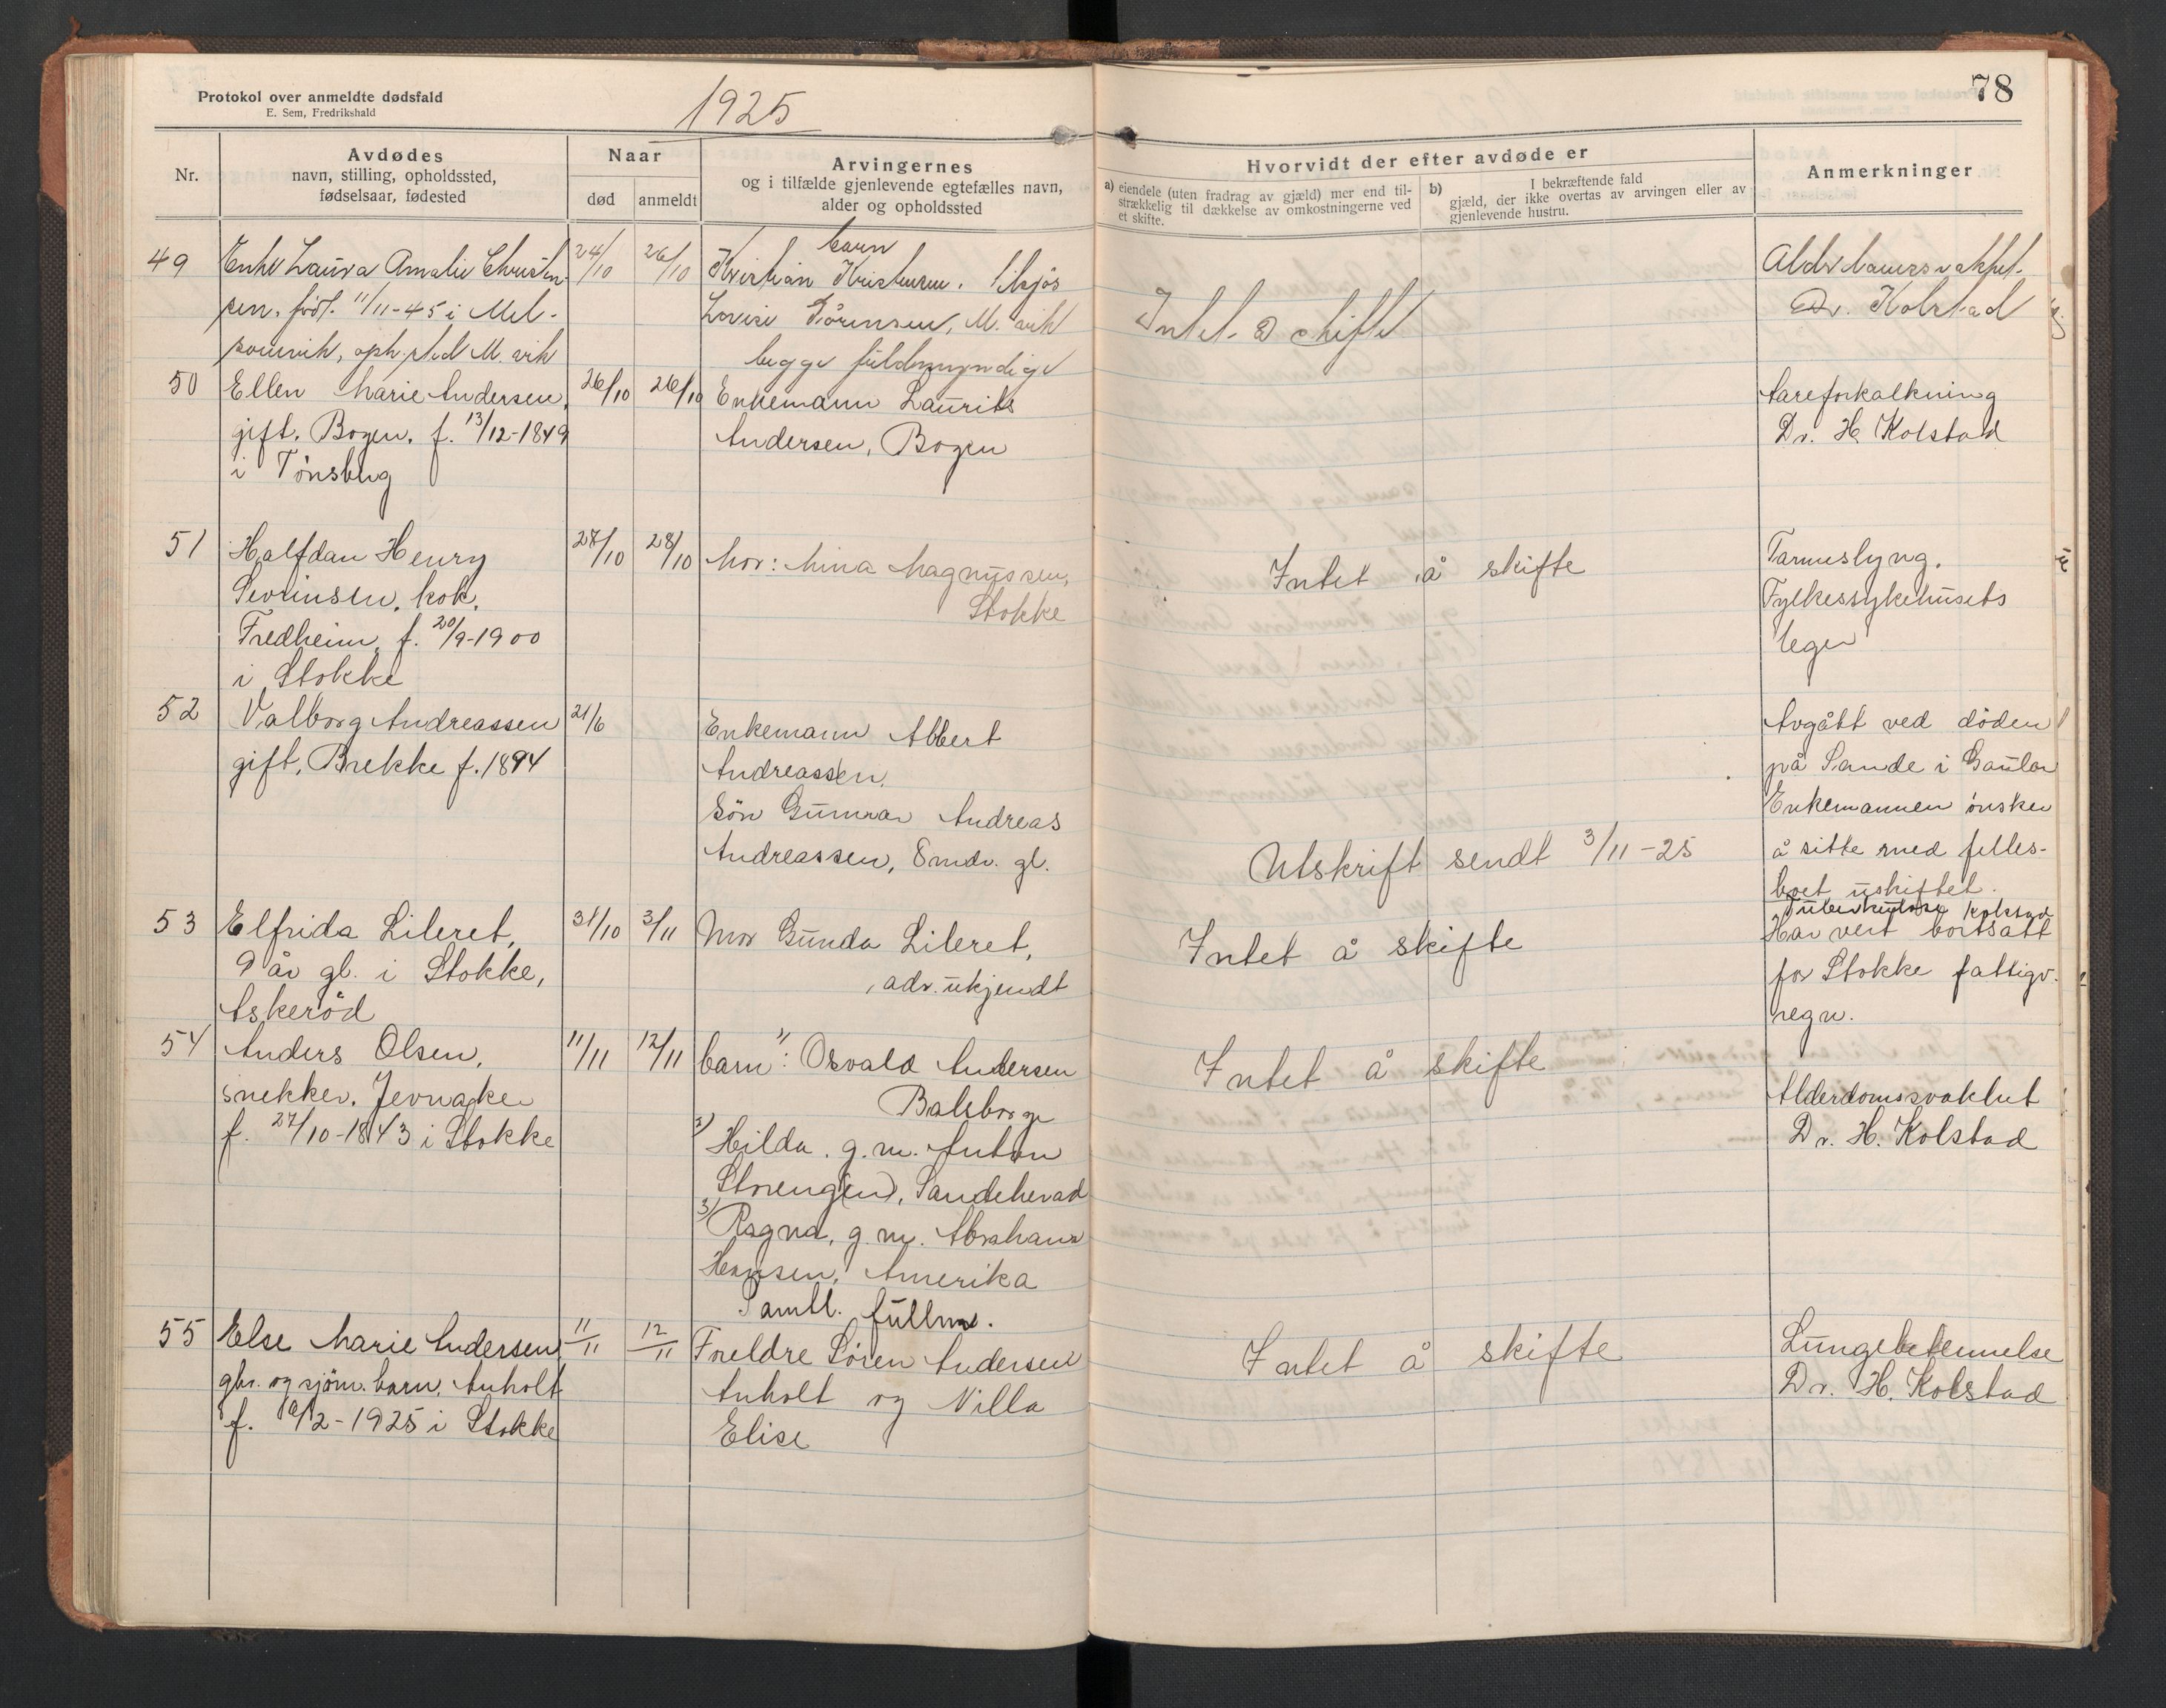 78
Protokol over anmeldte dødsfald
E. Sem, Fredrikshald
1925
Nr.
Avdødes
navn, stilling, opholdssted,
fødselsaar, fødested
Naar
død
anmeldt
Arvingernes
og i tilfælde gjenlevende egtefælles navn,
alder og opholdssted
Hvorvidt der efter avdøde er
a) eiendele (uten fradrag av gjæld) mer end til-
strækkelig til dækkelse av omkostningerne ved
et skifte.
b) I bekræftende fald
gjæld, der ikke overtas av arvingen eller av
gjenlevende hustru.
Anmerkninger
49
Enke Laura Amalie Christen-
sen, född. 11/11-45 i Mel-
somvik, oph.sted M. vik
24/10
26/10
barn
Kristian Kristensen, tilsjös
Lovise Sörensen, M. vik
begge fuldmyndige
Intet å skifte
Dr. Kolstad
50
Ellen Marie Andersen,
gift, Bogen, f. 13/12-1849
i Tönsberg
26/10
26/10
Enkemann Laurits
Andersen, Bogen
Aareforkalkning
Dr. H. Kolstad
51
Halfdan Henry
Sevrinsen, kok,
Fredheim, f. 20/9-1900
i Stokke
27/10
28/10
Mor: Mina Magnussen,
Stokke
Intet å skifte
Tarmslyng.
Fylkessykehusets
lege
52
Valborg Andreassen
gift, Brekke f. 1894
21/6
Enkemann Albert
Andreassen,
Sön Gunnar Andreas
Andreassen, 8 mdr. gl.
Utskrift sendt 3/11-25
Avgått ved döden
på Sande i Gaular
Enkemannen önsker
å sitte med felles-
boet uskiftet.
53
Elfrida Lileret,
9 år gl. i Stokke,
Askeröd
31/10
3/11
Mor Gunda Lileret,
adr. ukjendt
Intet å skifte
Tuberkulose Kolstad
Har vert bortsatt
for Stokke fattigv.
regn.
54
Anders Olsen,
snekker, Jevnaker
f. 27/10-1843 i Stokke
11/11
12/11
barn 1/: Osvald Andersen
Baleborge
2/ Hilda, g.m. Anton
Storengen, Sandeherad
3/ Ragna, g.m. Abraham
Hansen, Amerika
Samtl. fullm.
Intet å skifte
Alderdomssvakhet
Dr. H. Kolstad
55
Else Marie Andersen
gbr. og sjöm. barn, Anholt
f. /2-1925 i Stokke
11/11
12/11
Foreldre Sören Andersen
Anholt og Villa
Elise
Intet å skifte
Lungebetennelse
Dr. H. Kolstad